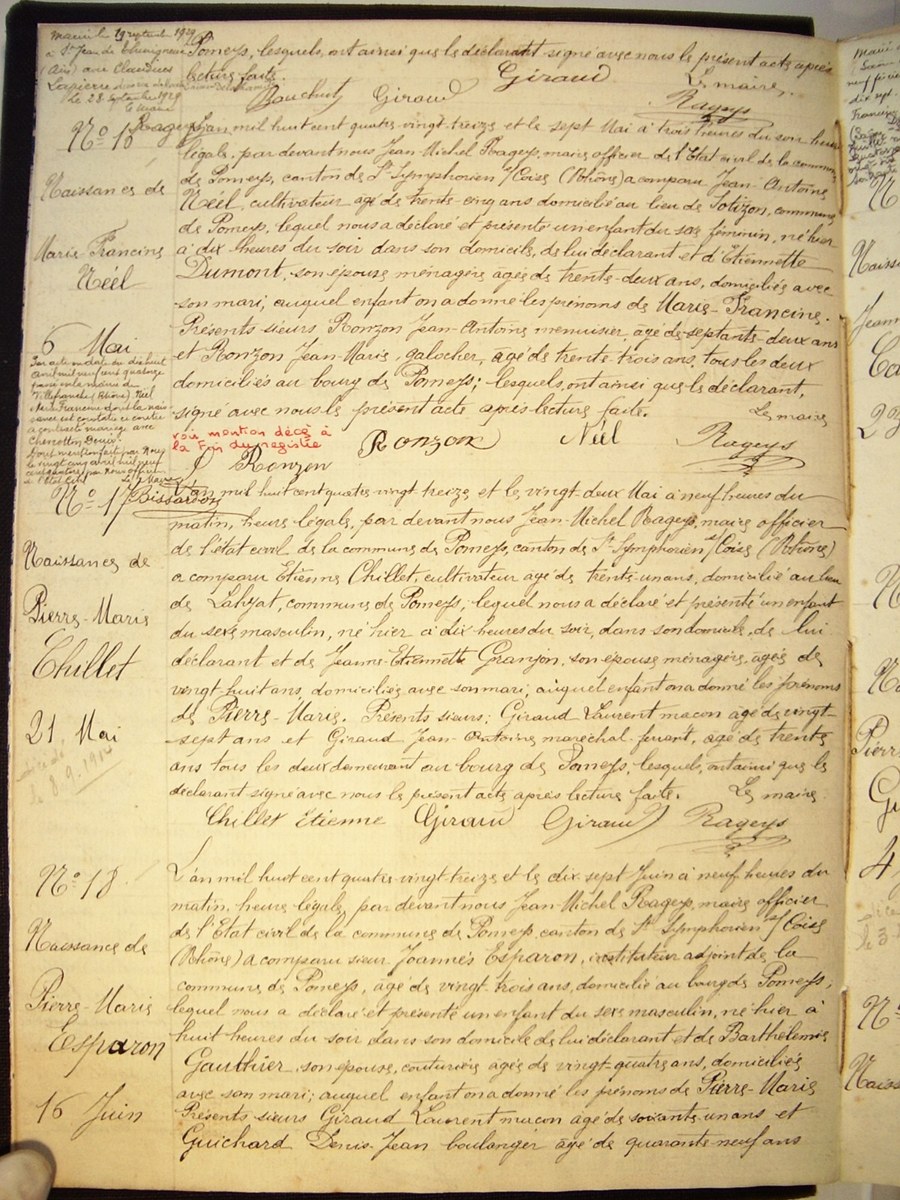 Marié le 19 septembre 1929
à St Jean de Thurigneux
(Ain) avec Claudine
Lapierre
Le 28 septembre 1929
Le Maire
Rageys
Pomeys, lesquels, ont ainsi que le déclarant signé avec nous le présent acte après
lecture faite.
Giraud Le maire,
Bouchut Giraud Rageys
No 16
Naissance de
Marie Francine
Néel
6 Mai
L'an mil huit cent quatre-vingt treize et le sept Mai à trois heures du soir heure
légale, par devant nous Jean Michel Rageys, maire officier de l'Etat civil de la commune
de Pomeys, canton de St Symphorien s/ Coise (Rhône) a comparu Jean Antoine
Néel, cultivateur âgé de trente-cinq ans domicilié au lieu de Potizon, commune
de Pomeys, lequel nous a déclaré et présenté un enfant du sexe féminin, né hier
à dix heures du soir dans son domicile, de lui déclarant et d'Etiennette
Dumont, son épouse ménagère âgée de trente-deux ans, domiciliés avec
son mari, auquel enfant on a donné les prénoms de Marie-Francine.
Présents sieurs Ronzon Jean-Antoine menuisier, âgé de septante-deux ans
et Ronzon Jean-Marie, galocher, âgé de trente-trois ans, tous les deux
domiciliés au bourg de Pomeys; lesquels, ont ainsi que le déclarant,
signé avec nous le présent acte après lecture faite. Le maire
Par acte en date du dix huit
avril mil neuf cent quatorze
passé en la mairie de
Villefranche (Rhône) Néel
Marie Francine dont la nais
sance est constatée ci contre
a contracté mariage avec
Dont mention faite par Nous
le vingt cinq avril mil neuf
cent quatorze par Nous officier
de l'Etat Civil Le Maire
Bissardon
voir mention décès à
la fin du registre
Ronzon Néel Rageys
J Ronzon
No 17
Naissance de
Pierre-Marie
Chillet
21 Mai
décédé
le 8.9.
L'an mil huit cent quatre vingt treize, et le vingt deux Mai à neuf heures du
matin, heure légale, par devant nous Jean-Michel Rageys, maire officier
de l'état civil de la commune de Pomeys, canton de St Symphorien s/ Coise (Rhône)
a comparu Etienne Chillet, cultivateur âgé de trente-un ans, domicilié au lieu
de Lahyat, commune de Pomeys; lequel nous a déclaré et présenté un enfant
du sexe masculin, né hier à dix heures du soir, dans son domicile, de lui
déclarant et de Jeanne-Etiennette Granjon, son épouse ménagère, âgée de
vingt-huit ans, domiciliés avec son mari, auquel enfant on a donné les prénoms
de Pierre-Marie. Présents sieurs: Giraud Laurent maçon âgé de vingt-
sept ans et Giraud Jean-Antoine maréchal-ferrant, âgé de trente
ans tous les deux demeurant au bourg de Pomeys, lesquels, ont ainsi que le
déclarant signé avec nous le présent acte après lecture faite. Le maire
Chillet Etienne Giraud Giraud Rageys
No 18
Naissance de
Pierre-Marie
Esparon
16 Juin
L'an mil huit cent quatre-vingt treize et le dix sept Juin à neuf heures du
matin, heure légale, par devant nous Jean-Michel Rageys, maire officier
de l'Etat civil de la commune de Pomeys, canton de St Symphorien s/ Coise
(Rhône) a comparu sieur Joannès Esparon, instituteur adjoint de la
commune de Pomeys, âgé de vingt-trois ans, domicilié au bourg de Pomeys,
lequel nous a déclaré et présenté un enfant du sexe masculin, né hier à
huit heures du soir dans son domicile de lui déclarant et de Barthélemie
Gauthier, son épouse, couturière âgée de vingt-quatre ans, domiciliés
avec son mari; auquel enfant on a donné les prénoms de Pierre-Marie
Présents sieurs Giraud Laurent maçon âgé de soixante-un ans et
Guichard Denis-Jean boulanger âgé de quarante-neuf ans